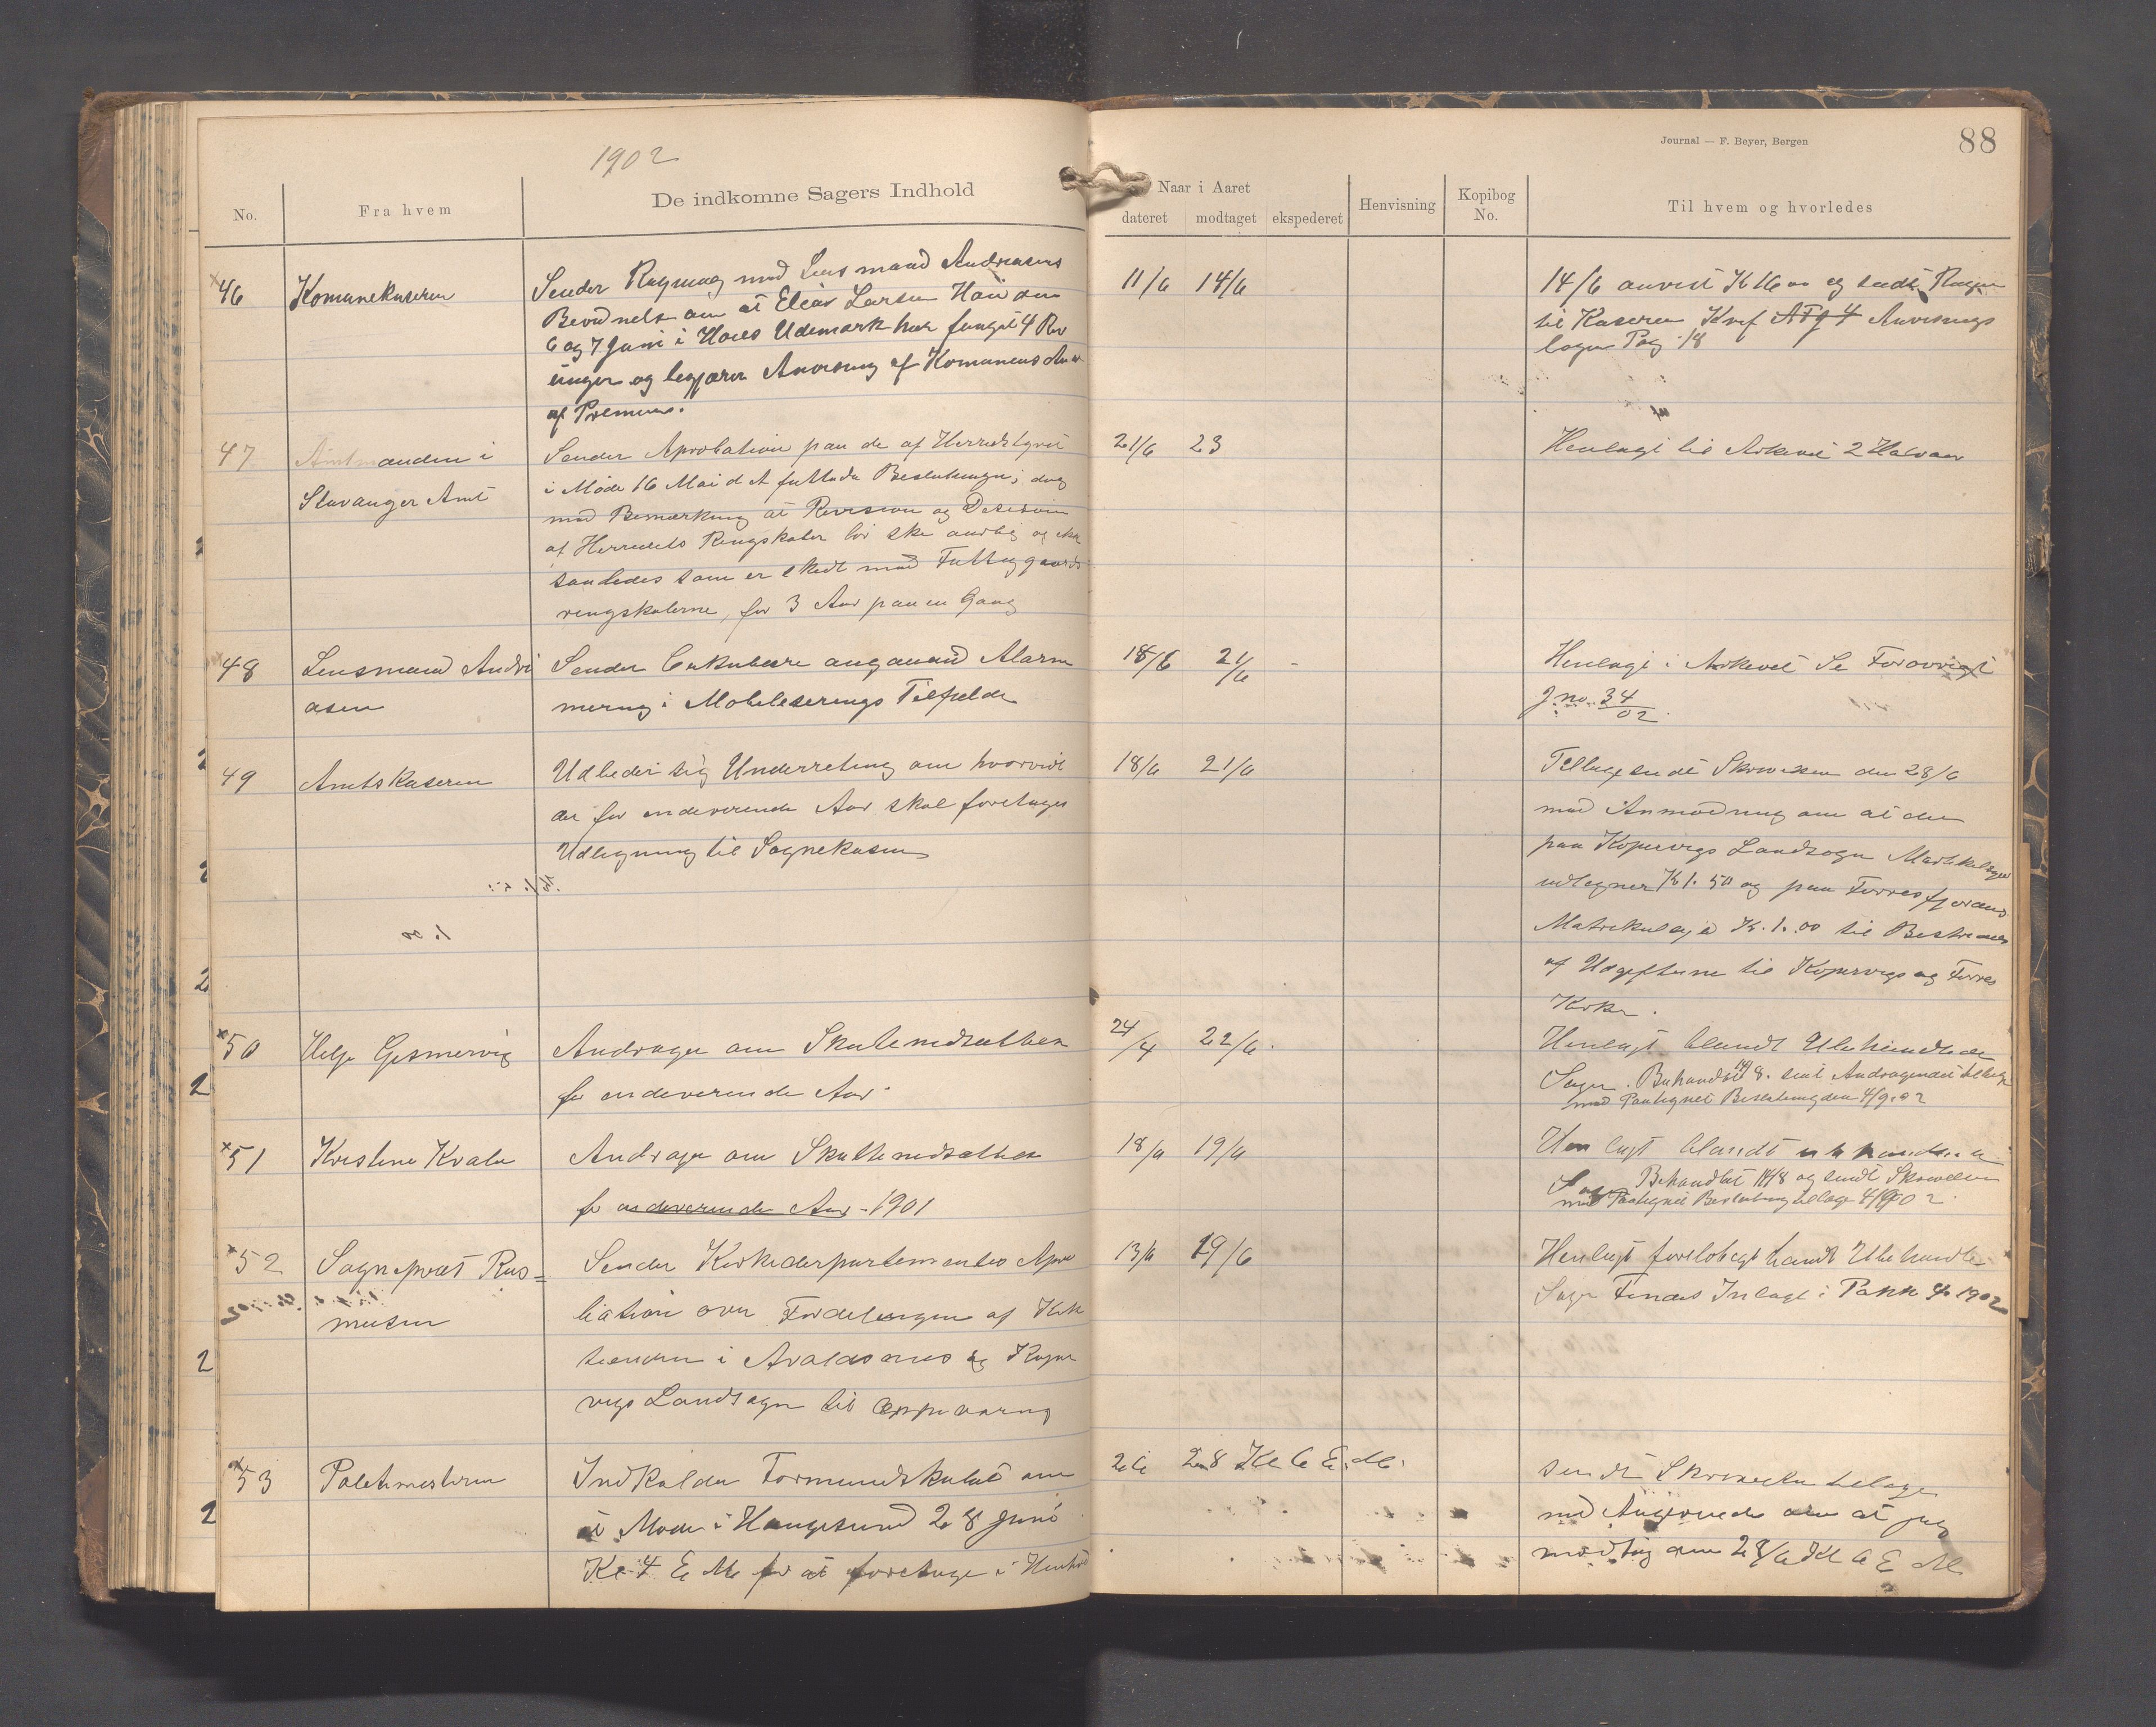 1902
Journal — F. Beyer, Bergen
88
No.
Fra hvem
De indkomne Sagers Indhold
Naar i Aaret
dateret
modtaget
ekspederet
Henvisning
Kopibog
No.
Til hvem og hvorledes
46
Komunekaseren
Sender Regning med Lensmand Andreasens
Bevidnelse om at Elias Larsen Hau den
6 og 7 Juni i Haues Udemark har fanget 4 Rev
unger og begjærer Anvisning af Komunens An
af Premien.
11/6
14/6
14/6 anvist K 16 00 og sendt Regn
til Kaseren Konf Anvisnings
bogen Pag 18
47
Amtmanden i
Stavanger Amt
Sender Aprobation paa de af Herredstyret
i Møde 16 Mai d A fattede Beslutninger, dog
med Bemærkning at Revision og Desision
af Herredets Rengskaber bør ske aarlig og ikke
saaledes som er skedt med Fattig
rengskaberne, for 3 Aar paa en Gang
21/6
23
Henlagt til Arkivet 2 Halvaar
48
Lensmand Andre
asen
Sender Cirkulære angaaend Alarme
mering i Mobiliserings Tilfælde
18/6
21/6
Henlagt i Arkivet Se Forøvrigt
J no. 34/02.
49
Amtskaseren
Udbeder sig Underretning om hvorvidt
der for indeværende Aar skal foretages
Udligning til Sognekasen
18/6
21/6
Tilbagesendt Skrivelsen den 28/6
med Anmodning om at der
paa Kopervigs Landsogn Matrikelskyld
udlignes K 1. 50 og paa Førresfjorden
Matrikulskyld K. 1. 00 til Bestridelse
af Udgifterne til Kopervigs og Førres
Kirke.
50
Helge Gismervig
Andrager om Skattenedsættelse
for indeværende Aar
24/4
22/6
Henlagt blandt Ubehandlede
Sager. Behandlet 14/8. sent Andragendet tilbage
med Paategnet Beslutning den 4/9.02
51
Kristine Kvalu
Andrager om Skattenedsættelse
for indeværende Aar - 1901
18/6
19/6
Henlagt blandt ubehandlede
Sager Behandlet 14/8 og sendt Skrivelsen
med Paategnet Beslutning tilbage 4/9 02.
52
Sogneprest Ras=
musen
Sender Kirkedepartementes Apro
bation over Fordelingen af Kirke
tienden i Avaldsnes og Koper
vigs Landsogn til Oppevaring
13/6
19/6
Henlagt foreløbigt blandt Ubehandlede
Sager Findes Inlagt i Pakke 4 1902
53
Politimesteren
Indkalder Formandskabet om
at Møde i Haugesund 28 Juni
Kl 4 E M for at foretage i Henhold
26
28 Kl 6 E. M.
sendt Skrivelse tilbage
med Angivende om at jeg
modtog den 28/6 Kl 6 E M